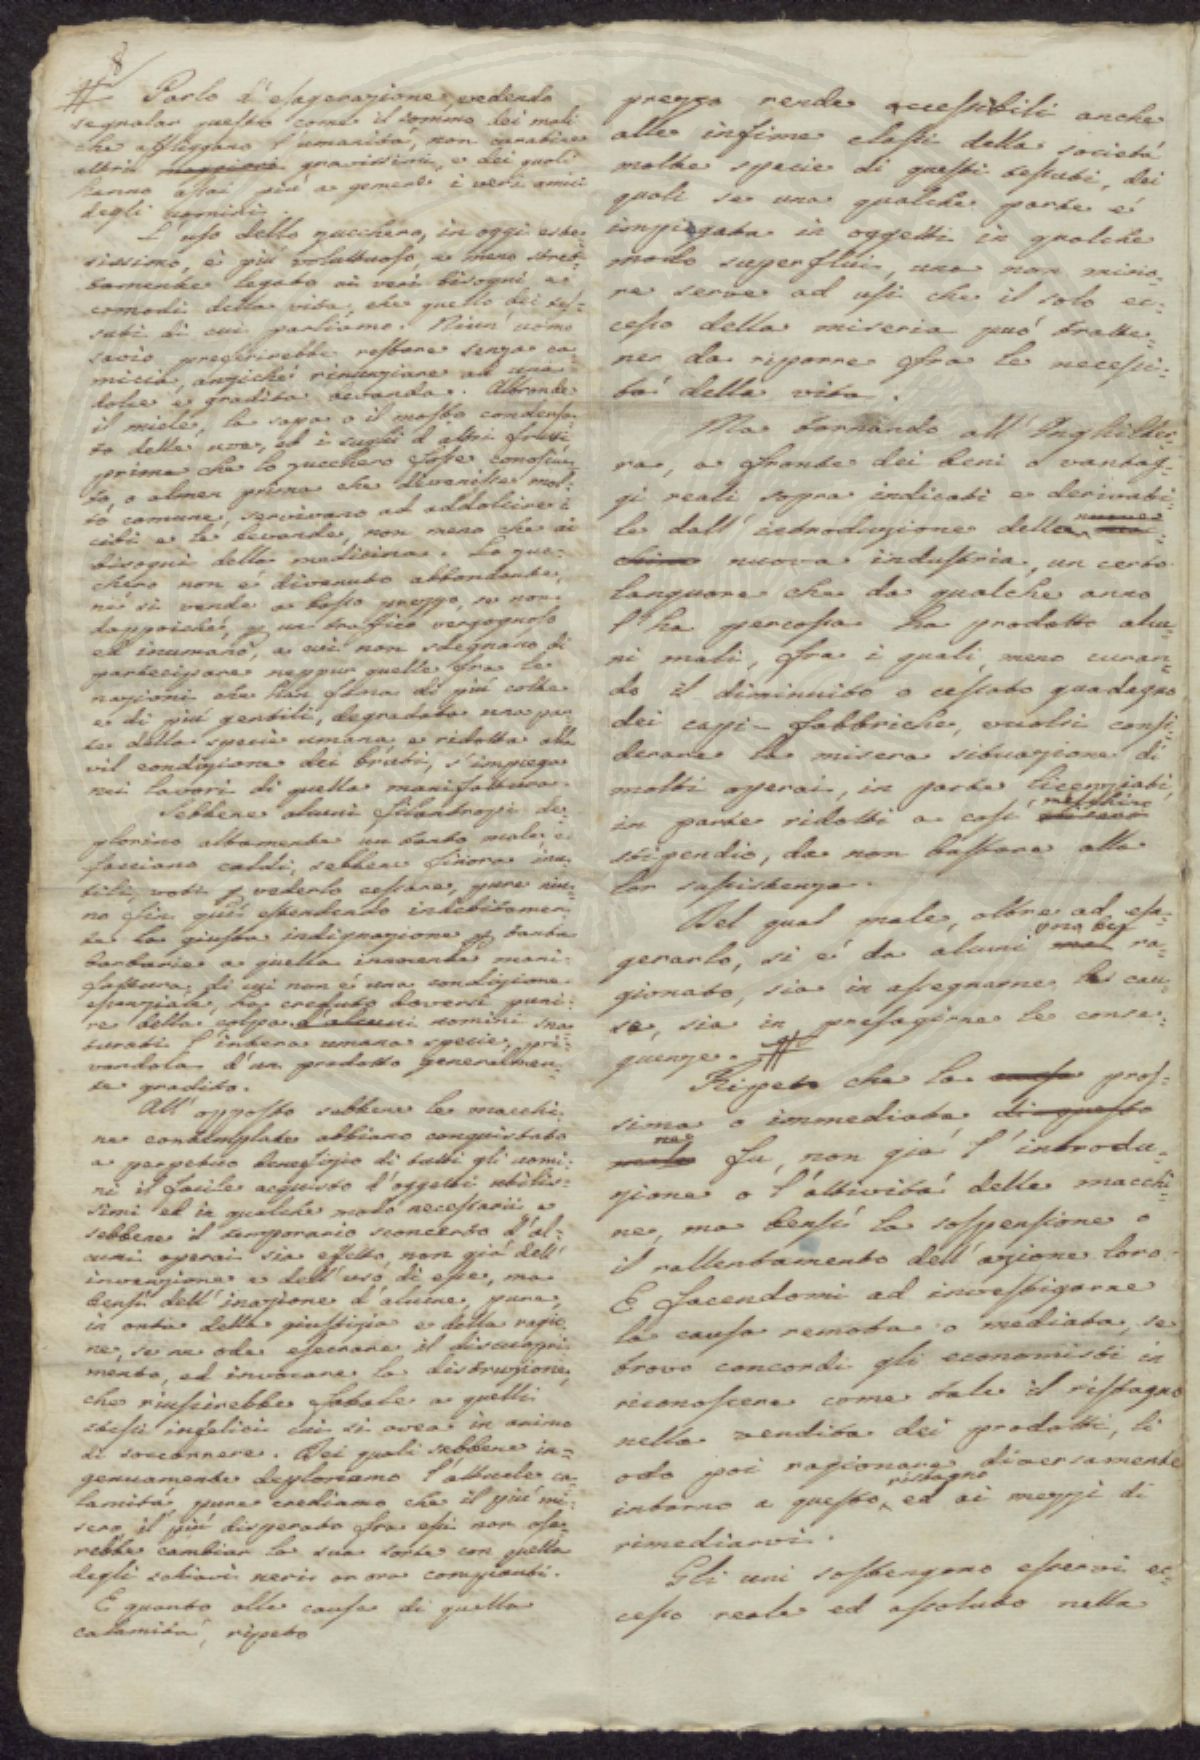 8
# Parlo d'esagerazione, vedendo
segnalar questo come il sommo dei mali
che affliggano l'umanità, non
altri maggiori gravissimi, e dei quali
hanno assai più a gemere i veri amici
degli uomini.
L'uso dello zucchero, in oggi este-
sissimo, è più voluttuoso e meno stret-
tamente legato ai veri bisogni e
comodi della vita, che quello dei tes-
suti di cui parliamo. Niun uomo
savio preferirebbe restare senza ca-
micia, anziché rinunziare ad una
dolce e gradita bevanda. Altronde
il miele, la sapa o il mosto condensa-
to delle uve, ed i sughi d'altri frutti
prima che lo zucchero fosse conosciu-
to, o almen prima che divenisse mol-
to comune, servivano ad addolcire i
cibi e le bevande, non meno che ai
bisogni della medicina. Lo zuc-
chero non è divenuto abbondante,
né si vende a basso prezzo, se non
dappoiché, p un traffico vergognoso
ed inumano, a cui non sdegnano di
partecipare neppur quelle fra le
nazioni che han fama di più colte
e di più gentili, degradata una par-
te della specie umana e ridotta alla
vil condizione dei bruti, s'impiega
nei lavori di quella manifattura.
Sebbene alcuni filantropi de-
plorino altamente un tanto male, e
facciano caldi, sebbene finora inu-
tili, voti p vederlo cessare, pure niu-
no fin qui estendendo indebitamen-
te la giusta indignazione p tanta
barbarie a quella innocente mani-
fattura, di cui non è una condizione
essenziale, ha creduto doversi puni-
re della colpa d'alcuni uomini sna-
turati l'intera umana specie, pri-
vandola d'un prodotto generalmen-
te gradito.
All'opposto sebbene le macchi-
ne contemplate abbiano conquistato
a perpetuo benefizio di tutti gli uomi-
ni il facile acquisto d'oggetti utilis-
simi ed in qualche modo necessarii e
sebbene il temporario sconcerto d'al-
cuni operai sia effetto, non già dell'
invenzione e dell'uso di esse, ma
bensì dell'inazione d'alcune, pure,
in onta della giustizia e della ragio-
ne, se ne ode esecrare il discuopri-
mento, ed invocare la distruzione,
che riuscirebbe fatale a quelli
stessi infelici cui si avea in animo
di soccorrere. Dei quali sebbene in-
genuamente deploriamo l'attuale ca-
lamità, pure crediamo che il più mi-
sero, il più disperato fra essi non ose-
rebbe cambiar la sua sorte con quella
degli schiavi neri or ora compianti.
E quanto alle cause di quella
calamità, ripeto
prezzo rende accessibili anche
alle infime classi della società
molte specie di questi tessuti, dei
quali se una qualche parte è
impiegata in oggetti in qualche
modo superflui, una non mino-
re serve ad usi che il solo ec-
cesso della miseria può tratte-
ner da riporre fra le necessi-
tà della vita.
Ma tornando all'Inghilter-
ra, a fronte dei beni o vantag-
gi reali sopra indicati e derivati-
le dall'introduzione della ma-
chine nuova industria, un certo
languore che da qualche anno
l'ha percossa ha prodotto alcu-
ni mali, fra i quali, meno curan-
do il diminuito o cessato guadagno
dei capi-fabbriche, vuolsi consi-
derare la misera situazione di
molti operai, in parte licenziati,
in parte ridotti a così meschino
stipendio, da non bastare alla
lor sussistenza.
Del qual male, oltre ad esa-
gerarlo, si è da alcuni mal ra-
gionato, sia in assegnarne le cau-
se, sia in presagirne le conse-
guenze. #
Ripeto che la causa pros-
sima o immediata di questo
male ne fu, non già l'introdu-
zione o l'attività delle macchi-
ne, ma bensì la sospensione o
il rallentamento dell'azione loro.
E facendomi ad investigarne
la causa remota o mediata, se
trovo concordi gli economisti in
riconoscere come tale il ristagno
nella vendita dei prodotti, li
odo poi ragionare diversamente
intorno a questo ristagno ed ai mezzi di
rimediarvi.
Gli uni sostengono esservi ec-
cesso reale ed assoluto nella